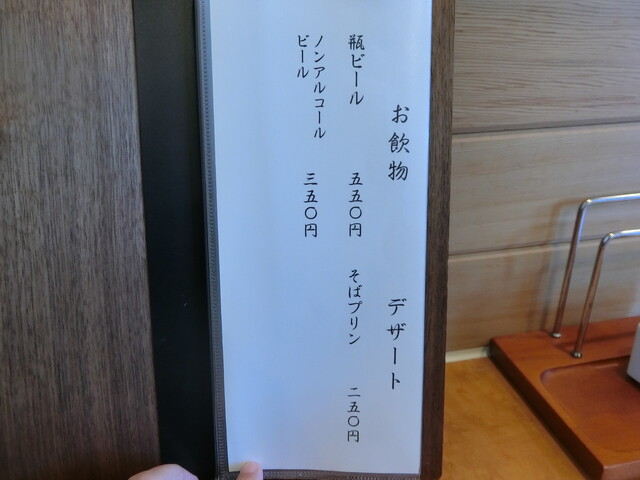 お飲物
瓶ビール 五五〇円
ノンアルコール
ビール 三五〇円
デザート
そばプリン 二五〇円